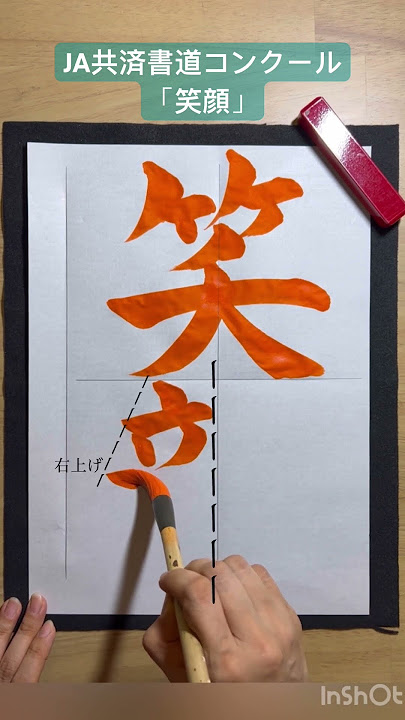 JA共済書道コンクール
「笑顔」
笑
右上げ
InShOt